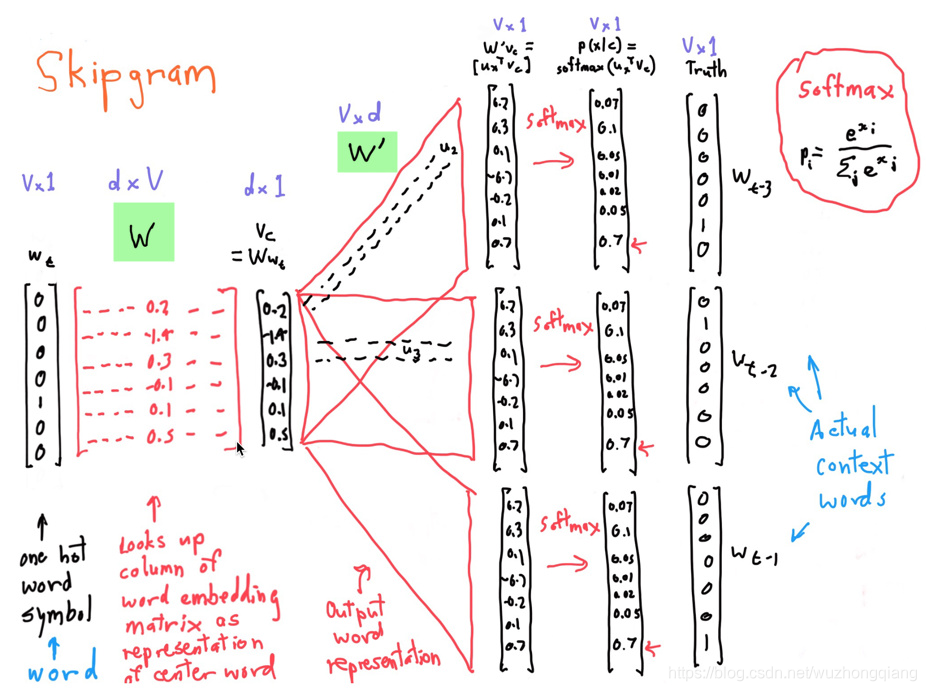 Skipgram
V x 1
w_t
0
0
0
0
1
0
0
one hot
word
symbol
word
d x V
W
---- 0.2 - -
---- -1.4 - -
--- 0.3 - -
--- -0.1 - -
--- 0.1 - -
--- 0.5 - -
Looks up
column of
word embedding
matrix as
representation
of center word
d x 1
V_c
= W w_t
0.2
-1.4
0.3
-0.1
0.1
0.5
V x d
W'
u_2
u_3
Output
word
representation
V x 1
W'v_c =
[u_x^T v_c]
6.3
0.1
-6.7
-0.2
0.1
0.7
softmax
V x 1
p(x|c) =
softmax(u_x^T v_c)
0.07
0.1
0.05
0.01
0.02
0.05
0.7
V x 1
Truth
0
0
0
0
0
1
0
w_t-3
softmax
p_i = e^x_i / Σ_j e^x_j
6.3
0.1
-6.7
-0.2
0.1
0.7
softmax
0.07
0.1
0.05
0.01
0.02
0.05
0.7
0
1
0
0
0
0
0
w_t-2
Actual
context
words
6.3
0.1
-6.7
-0.2
0.1
0.7
softmax
0.07
0.1
0.05
0.01
0.02
0.05
0.7
0
0
0
0
0
0
1
w_t-1
https://blog.csdn.net/wuzhongqiang